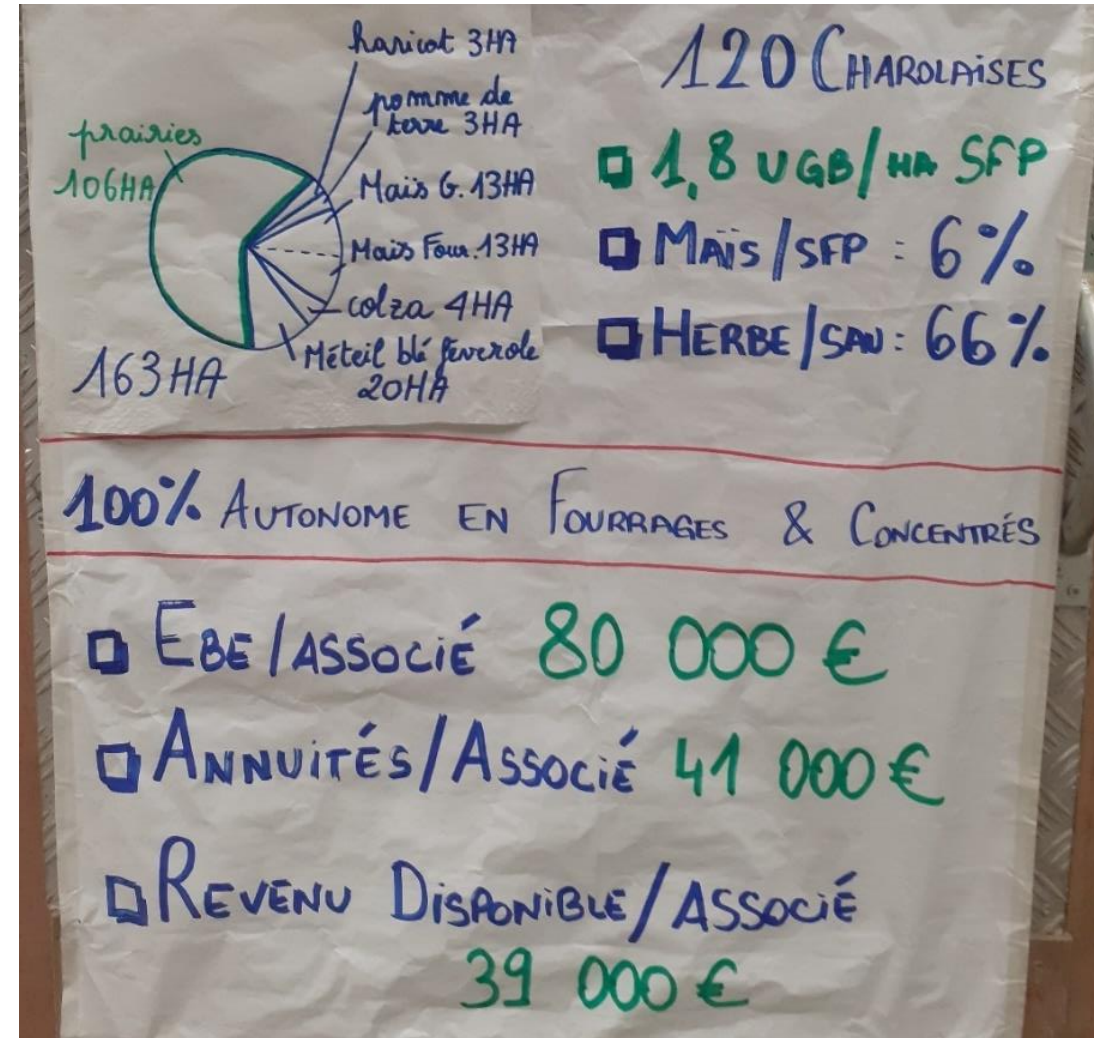 haricot 3HA
pomme de
terre 3HA
prairies
106HA
Maïs G. 13HA
Maïs Four. 13HA
colza 4HA
Méteil blé féverole
20HA
163HA
120 CHAROLAISES
1,8 UGB/HA SFP
MAÏS/SFP : 6%
HERBE/SAU : 66%
100% AUTONOME EN FOURRAGES & CONCENTRÉS
EBE/ASSOCIÉ 80 000 €
ANNUITÉS/ASSOCIÉ 41 000 €
REVENU DISPONIBLE/ASSOCIÉ
39 000 €